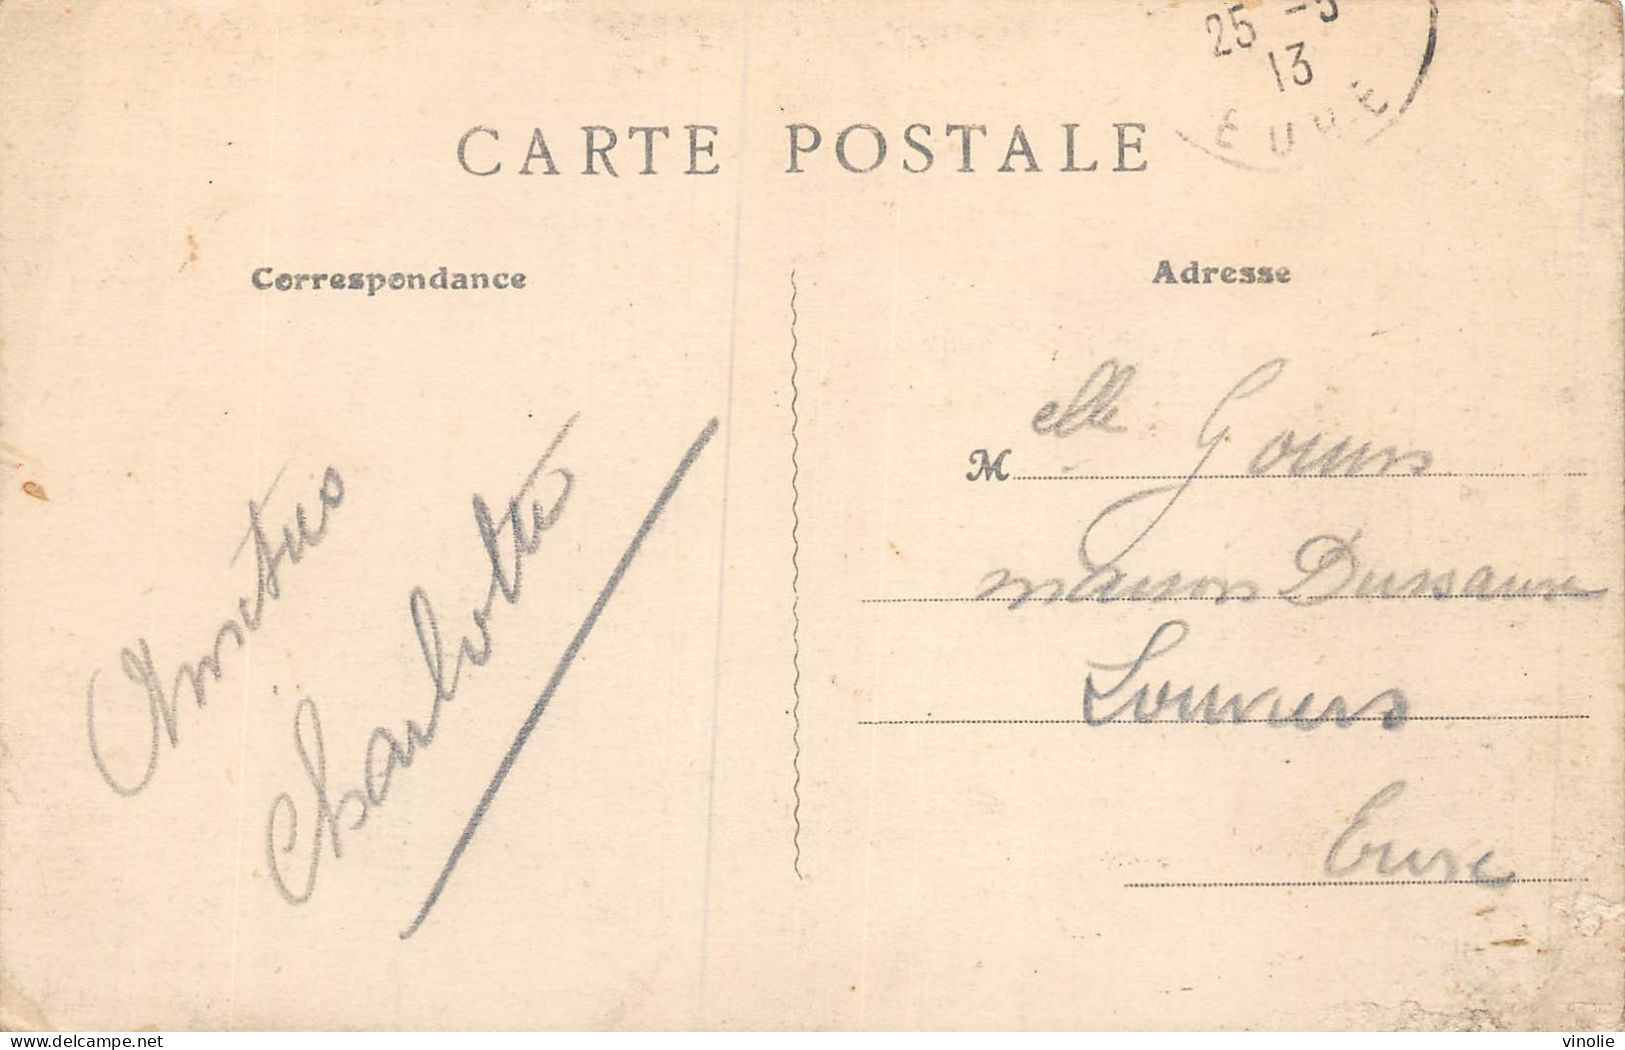 25 -5
13
EURE
CARTE POSTALE
Correspondance
Adresse
Amitiés
Charlotte
M elle Gouin
maison Dussaux
Louviers
Eure
delcampe.net
vinolie